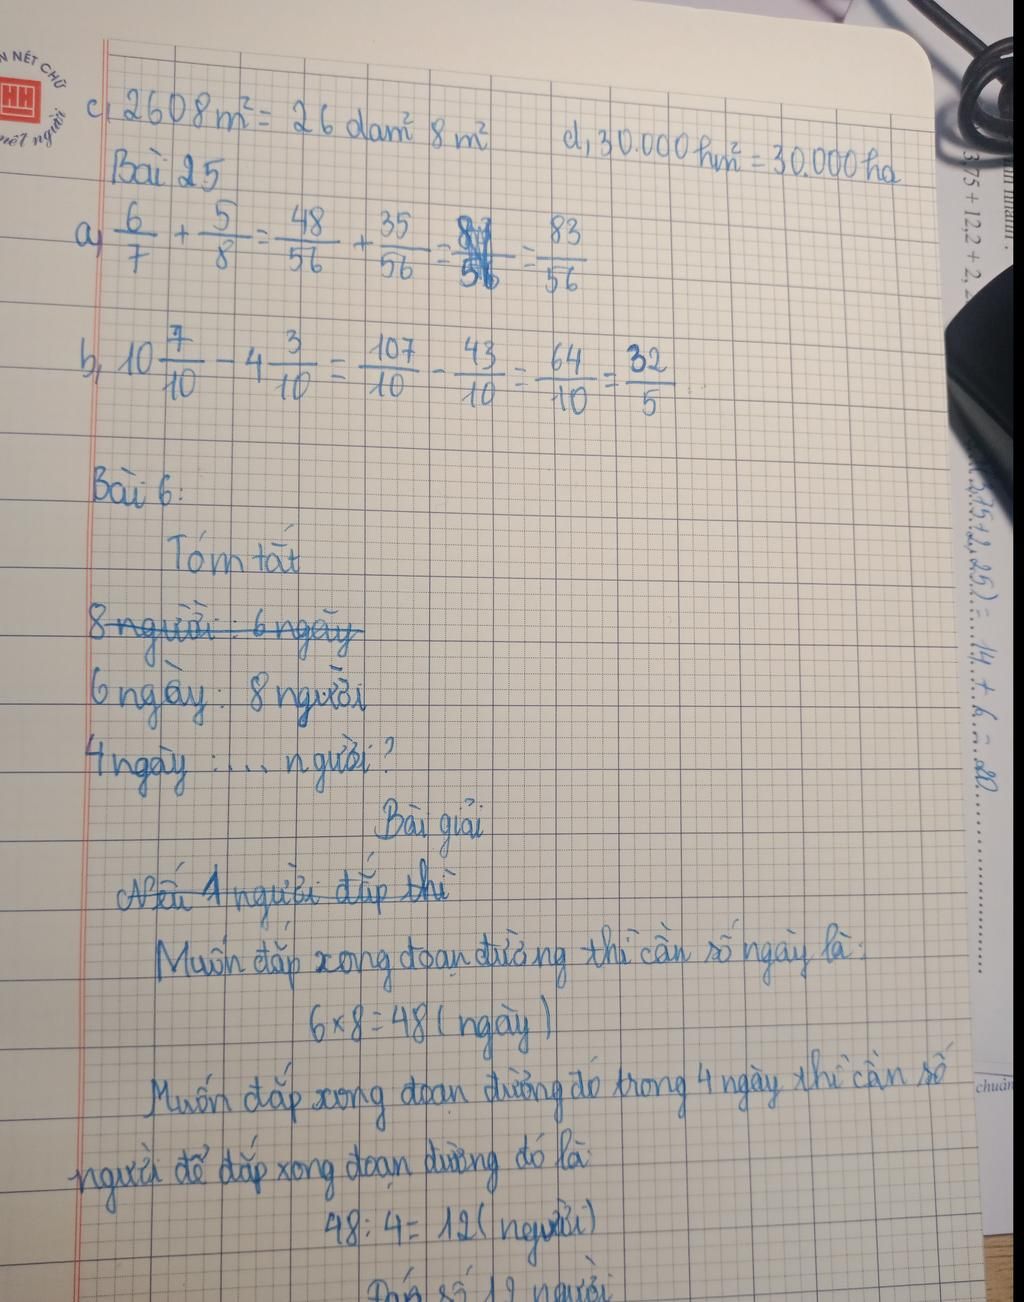 N NÉT CHỮ
HH
nết người
c, 2608m² = 26 dam² 8m² d, 30.000hm² = 30.000ha
Bài 25
a, 6/7 + 5/8 = 48/56 + 35/56 = = 83/56
b, 10 7/10 - 4 3/10 = 107/10 - 43/10 = 64/10 = 32/5
Bài 6:
Tóm tắt
8 người : 6 ngày
6 ngày : 8 người
4 ngày : ... người?
Bài giải
Nếu 1 người đắp thì
Muốn đắp xong đoạn đường thì cần số ngày là:
6 × 8 = 48 (ngày)
Muốn đắp xong đoạn đường đó trong 4 ngày thì cần số
người để đắp xong đoạn đường đó là:
48 : 4 = 12 (người)
Đáp số 12 người
3,75 + 12,2 + 2,
3,75 + 2,25) = 14 + 6 = 20
chuẩn